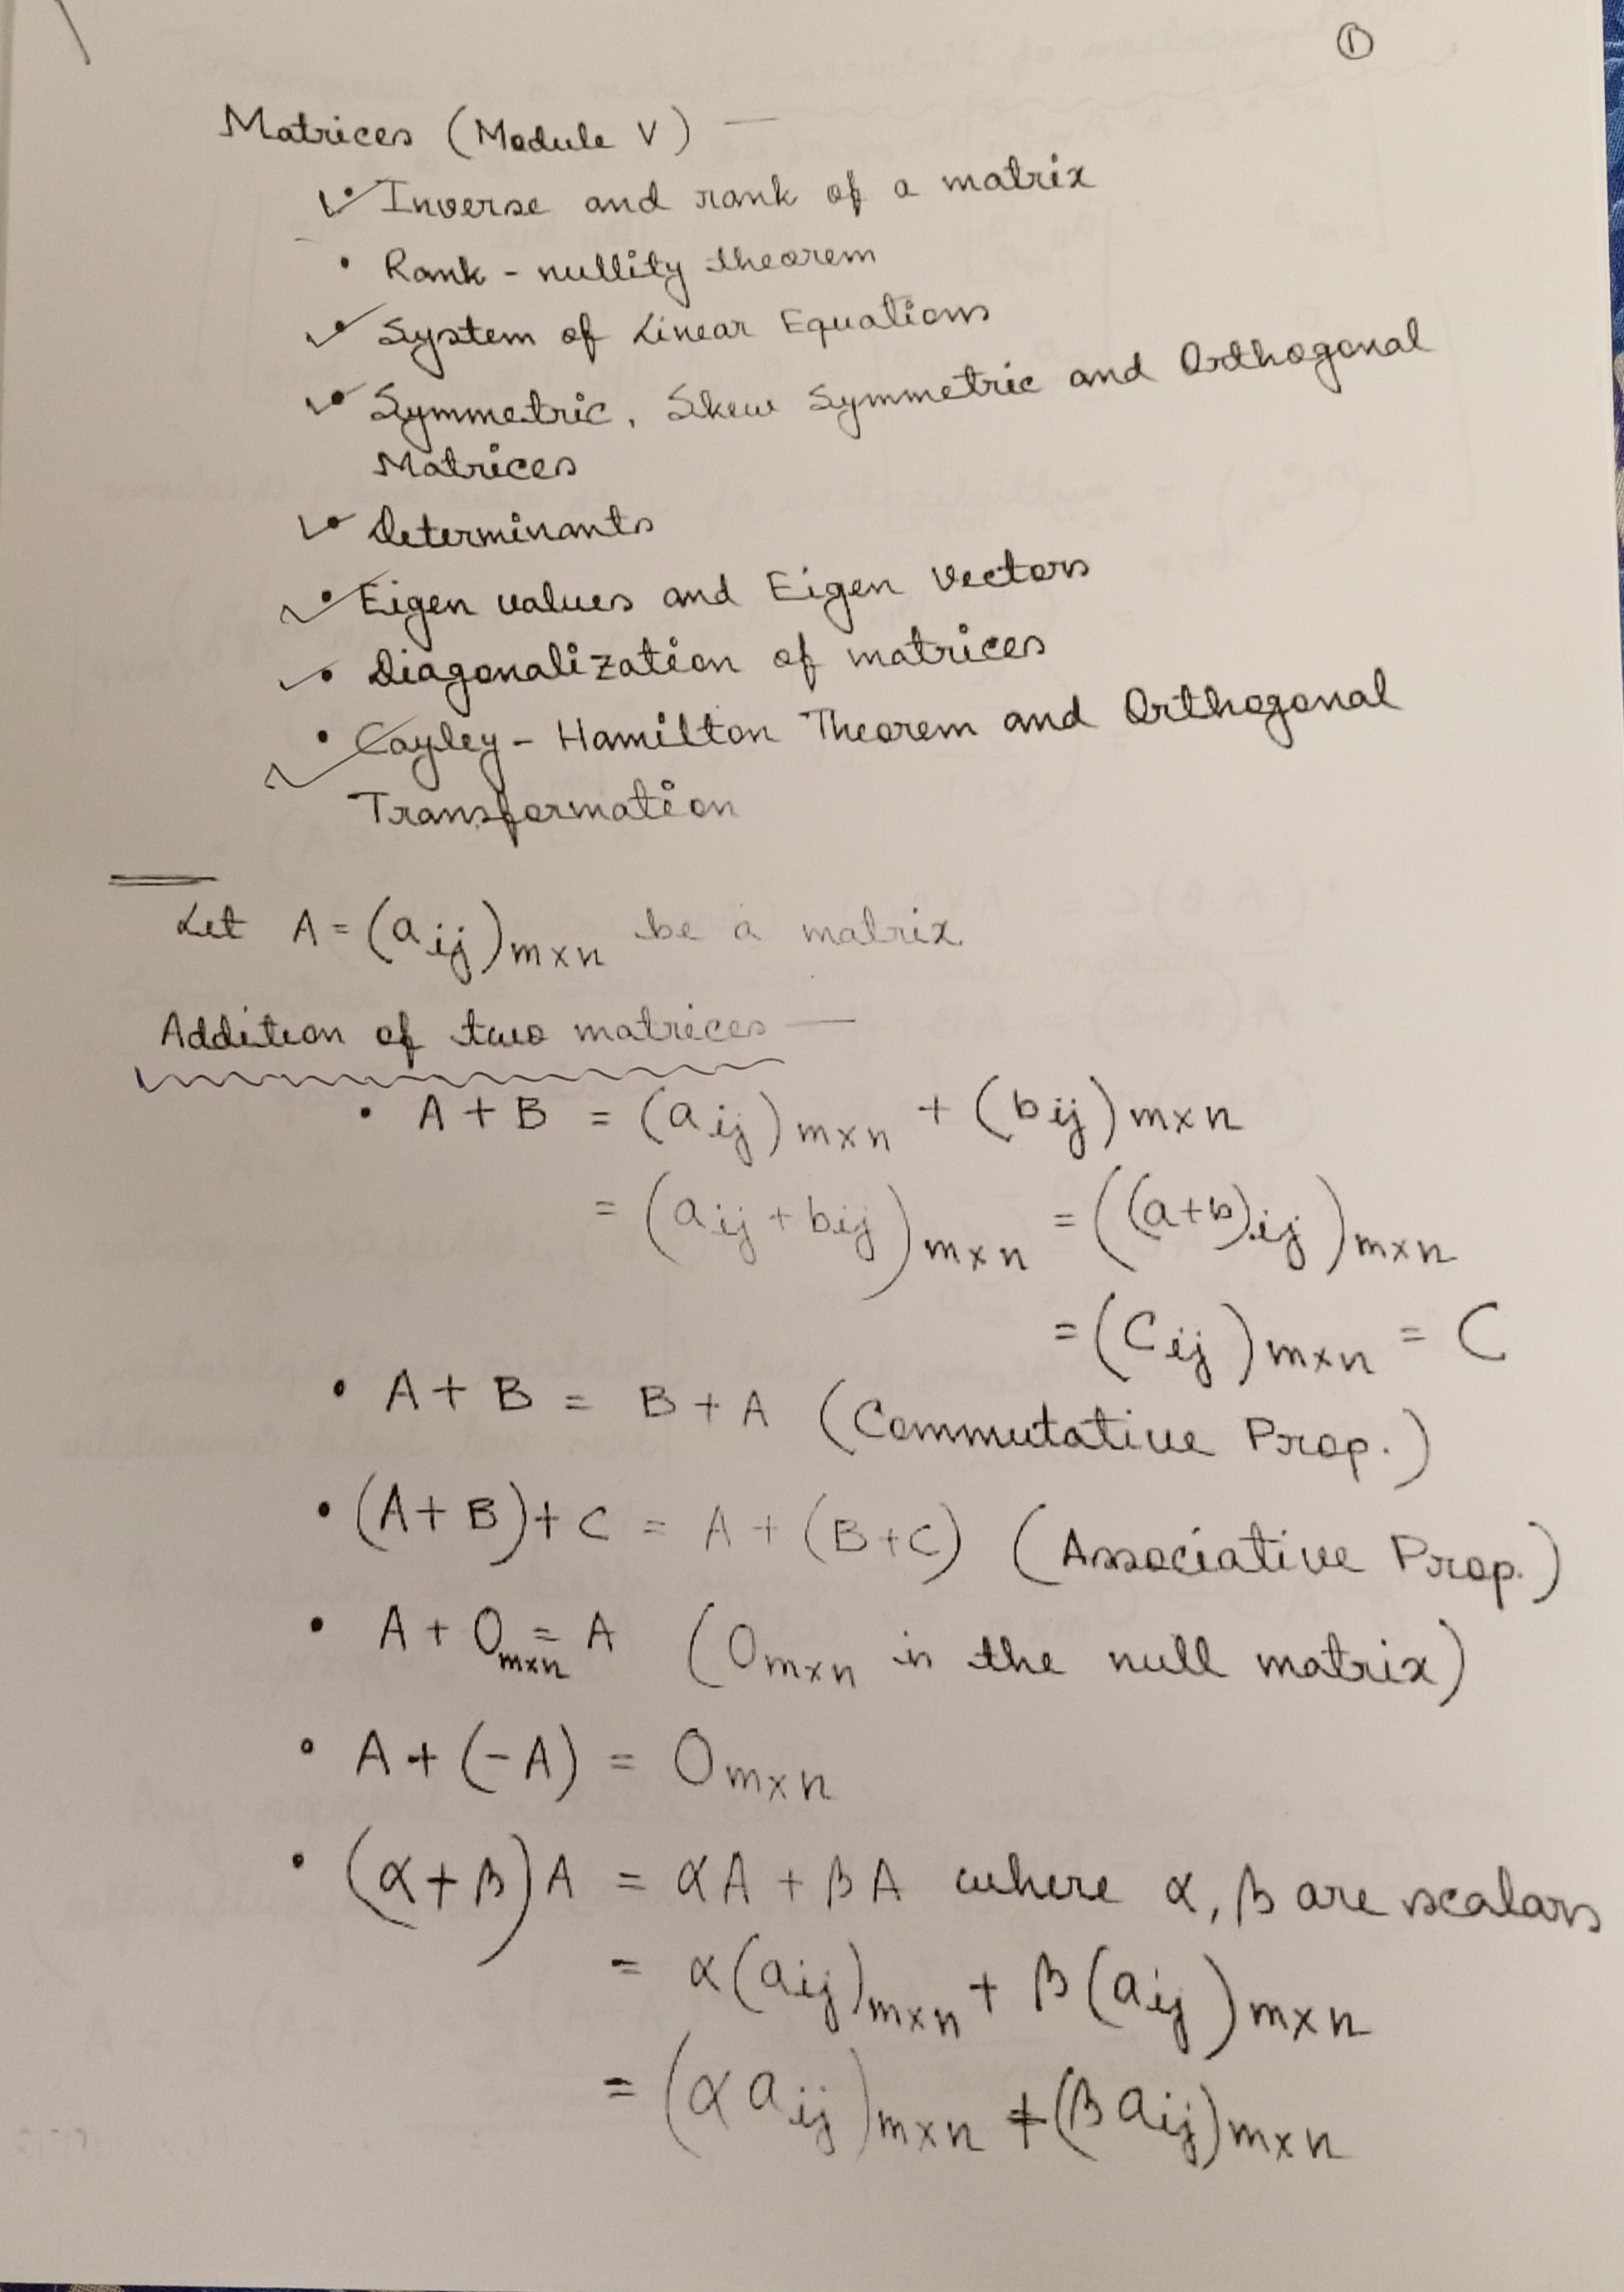 ①
Matrices (Module V) —
✓• Inverse and rank of a matrix
• Rank - nullity theorem
✓• System of Linear Equations
✓• Symmetric, Skew Symmetric and Orthogonal
Matrices
✓• Determinants
✓• Eigen values and Eigen Vectors
✓• Diagonalization of matrices
✓• Cayley - Hamilton Theorem and Orthogonal
Transformation
Let A = (a_ij)_m×n be a matrix.
Addition of two matrices —
• A + B = (a_ij)_m×n + (b_ij)_m×n
= (a_ij + b_ij)_m×n = ((a+b)_ij)_m×n
= (C_ij)_m×n = C
• A + B = B + A (Commutative Prop.)
• (A + B) + C = A + (B + C) (Associative Prop.)
• A + O_m×n = A (O_m×n is the null matrix)
• A + (-A) = O_m×n
• (α + β)A = αA + βA where α, β are scalars
= α(a_ij)_m×n + β(a_ij)_m×n
= (αa_ij)_m×n + (βa_ij)_m×n